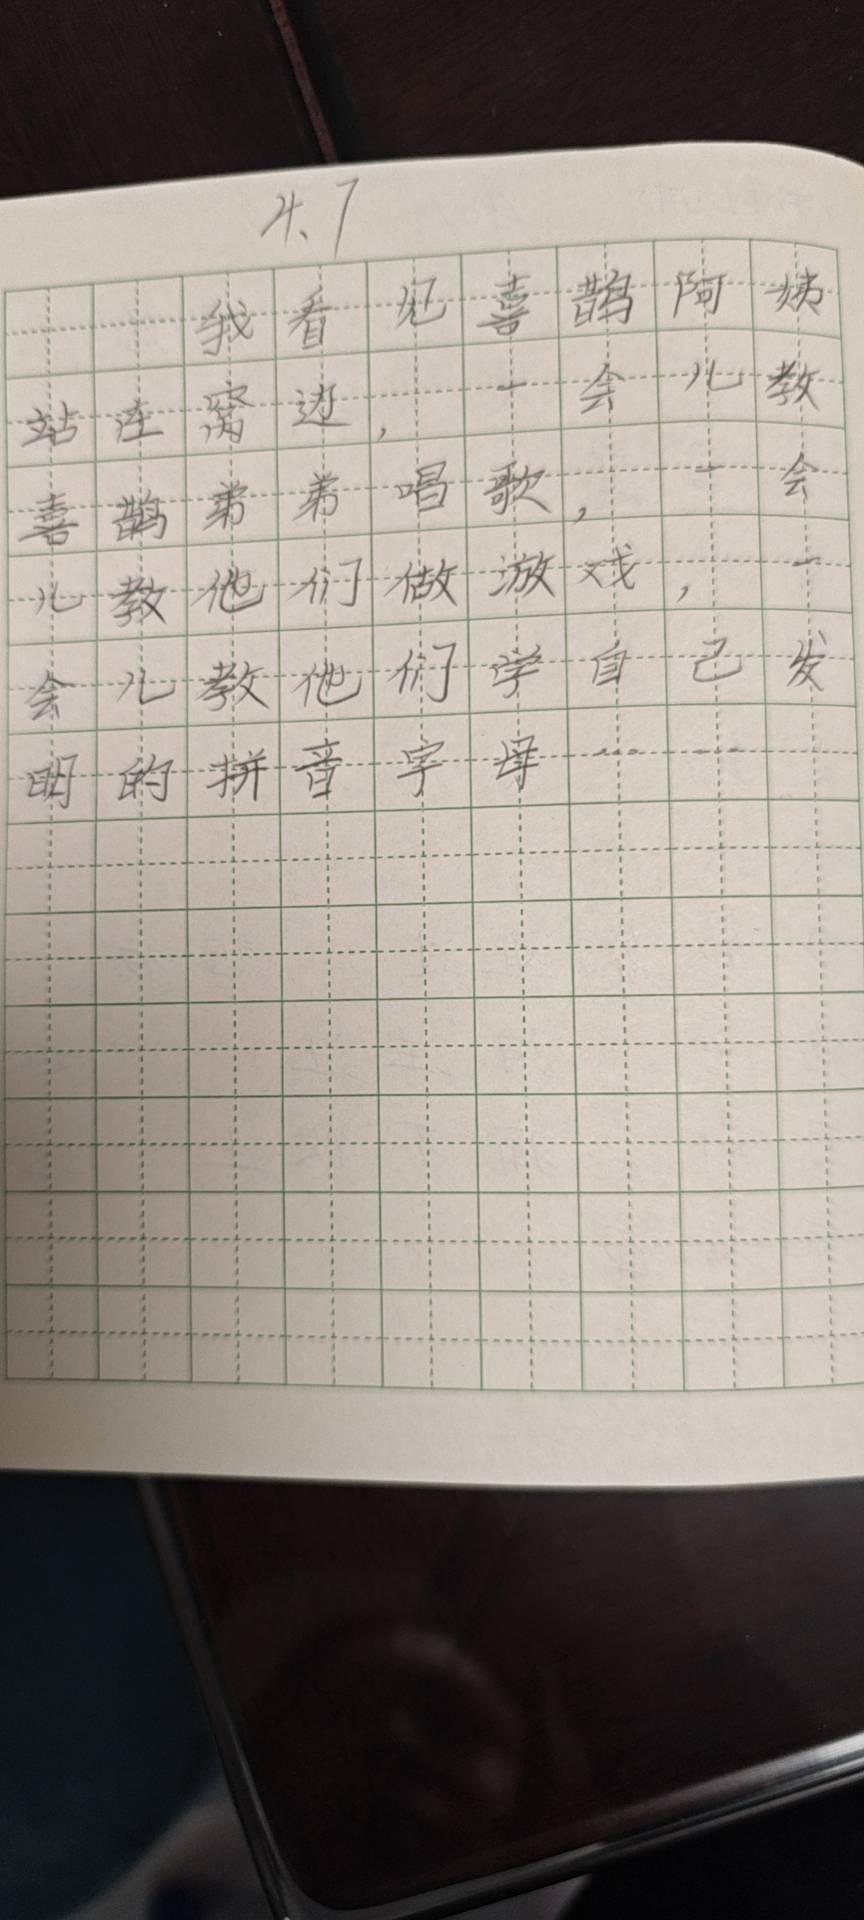 4.7
我看见喜鹊阿姨
站在窝边，一会儿教
喜鹊弟弟唱歌，一会
儿教他们做游戏，一
会儿教他们学自己发
明的拼音字母……